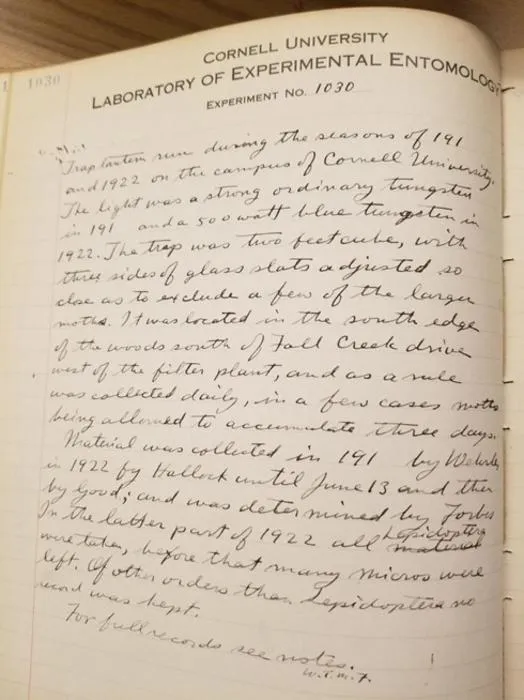 1030
CORNELL UNIVERSITY
LABORATORY OF EXPERIMENTAL ENTOMOLOGY
EXPERIMENT No. 1030
Trap lantern run during the seasons of 191
and 1922 on the campus of Cornell University.
The light was a strong ordinary tungsten
in 191 and a 500 watt blue tungsten in
1922. The trap was two feet cube, with
three sides of glass slats adjusted so
close as to exclude a few of the larger
moths. It was located in the south edge
of the woods south of Fall Creek drive
west of the filter plant, and as a rule
was collected daily, in a few cases moths
being allowed to accumulate three days.
Material was collected in 191 by
in 1922 by Hallock until June 13 and then
by Good; and was determined by Forbes
In the latter part of 1922 all Lepidoptera material
were taken, before that many micros were
left. Of other orders than Lepidoptera no
record was kept.
For full records see notes.
W.T.M.F.